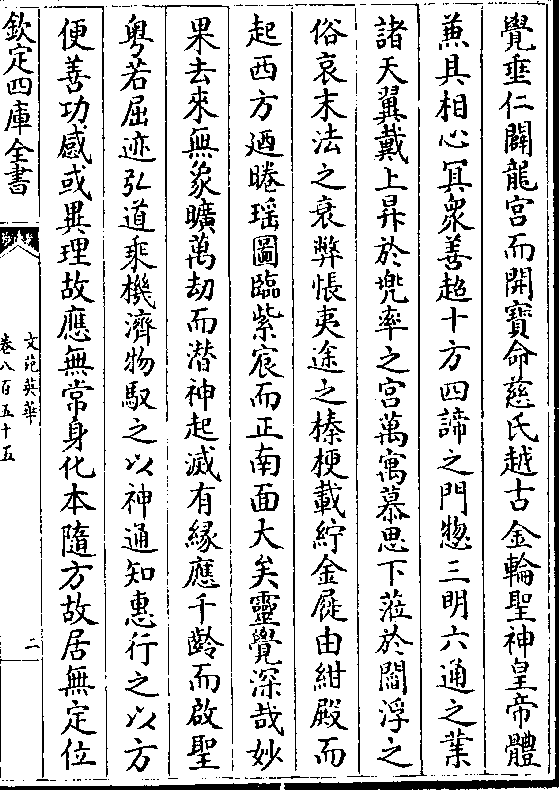 覺垂仁闢龍宮而開寶命慈氏越古金輪聖神皇帝體
兼具相心冥衆善超十方四諦之門惣三明六通之業
諸天翼戴上昇於兠率之宮萬㝢慕思下蒞於閻浮之
俗哀末法之衰弊悵夷途之榛梗載紵金屣由紺殿而
起西方迺睠瑶圖臨紫宸而正南面大矣靈覺深哉妙
果去來無象曠萬劫而潛神起滅有緣應千齡而啟聖
粤若屈迹弘道乘機濟物馭之以神通知惠行之以方
便善功感或異理故應無常身化本隨方故居無定位
欽定四庫全書
文苑英華
卷八百五十五
二